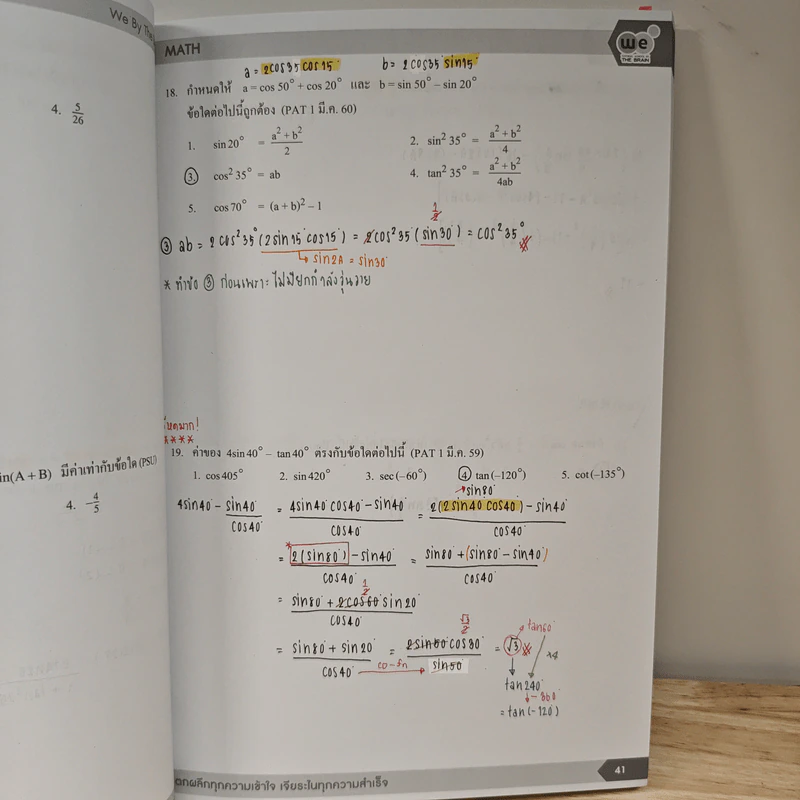 We By The
4. 5/26
in(A + B) มีค่าเท่ากับข้อใด (PSU)
4. -4/5
MATH
we
THE BRAIN
a = 2cos35°cos15° b = 2cos35°sin15°
18. กำหนดให้ a = cos 50° + cos 20° และ b = sin 50° – sin 20°
ข้อใดต่อไปนี้ถูกต้อง (PAT 1 มี.ค. 60)
1. sin 20° = (a² + b²)/2 2. sin² 35° = (a² + b²)/4
3. cos² 35° = ab 4. tan² 35° = (a² + b²)/4ab
5. cos 70° = (a + b)² – 1
1/2
③ ab = 2cos²35°(2sin15°cos15°) = 2cos²35°(sin30°) = cos²35°
sin2A = sin30°
* ทำข้อ ③ ก่อนเพราะไม่มียกกำลังวุ่นวาย
โหดมาก!
19. ค่าของ 4sin 40° – tan 40° ตรงกับข้อใดต่อไปนี้ (PAT 1 มี.ค. 59)
1. cos 405° 2. sin 420° 3. sec (–60°) 4. tan (–120°) 5. cot (–135°)
sin80°
4sin40° - sin40°/cos40° = (4sin40°cos40° - sin40°)/cos40° = (2(2sin40°cos40°) - sin40°)/cos40°
= (2(sin80°) - sin40°)/cos40° = (sin80° + (sin80° - sin40°))/cos40°
1/2
= (sin80° + 2cos60°sin20°)/cos40°
√3/2 tan60°
= (sin80° + sin20°)/cos40° = 2sin50°cos30°/sin50° = √3
co-fn ×4
tan240°
-360
= tan(-120°)
ตกผลึกทุกความเข้าใจ เจียระไนทุกความสำเร็จ
41